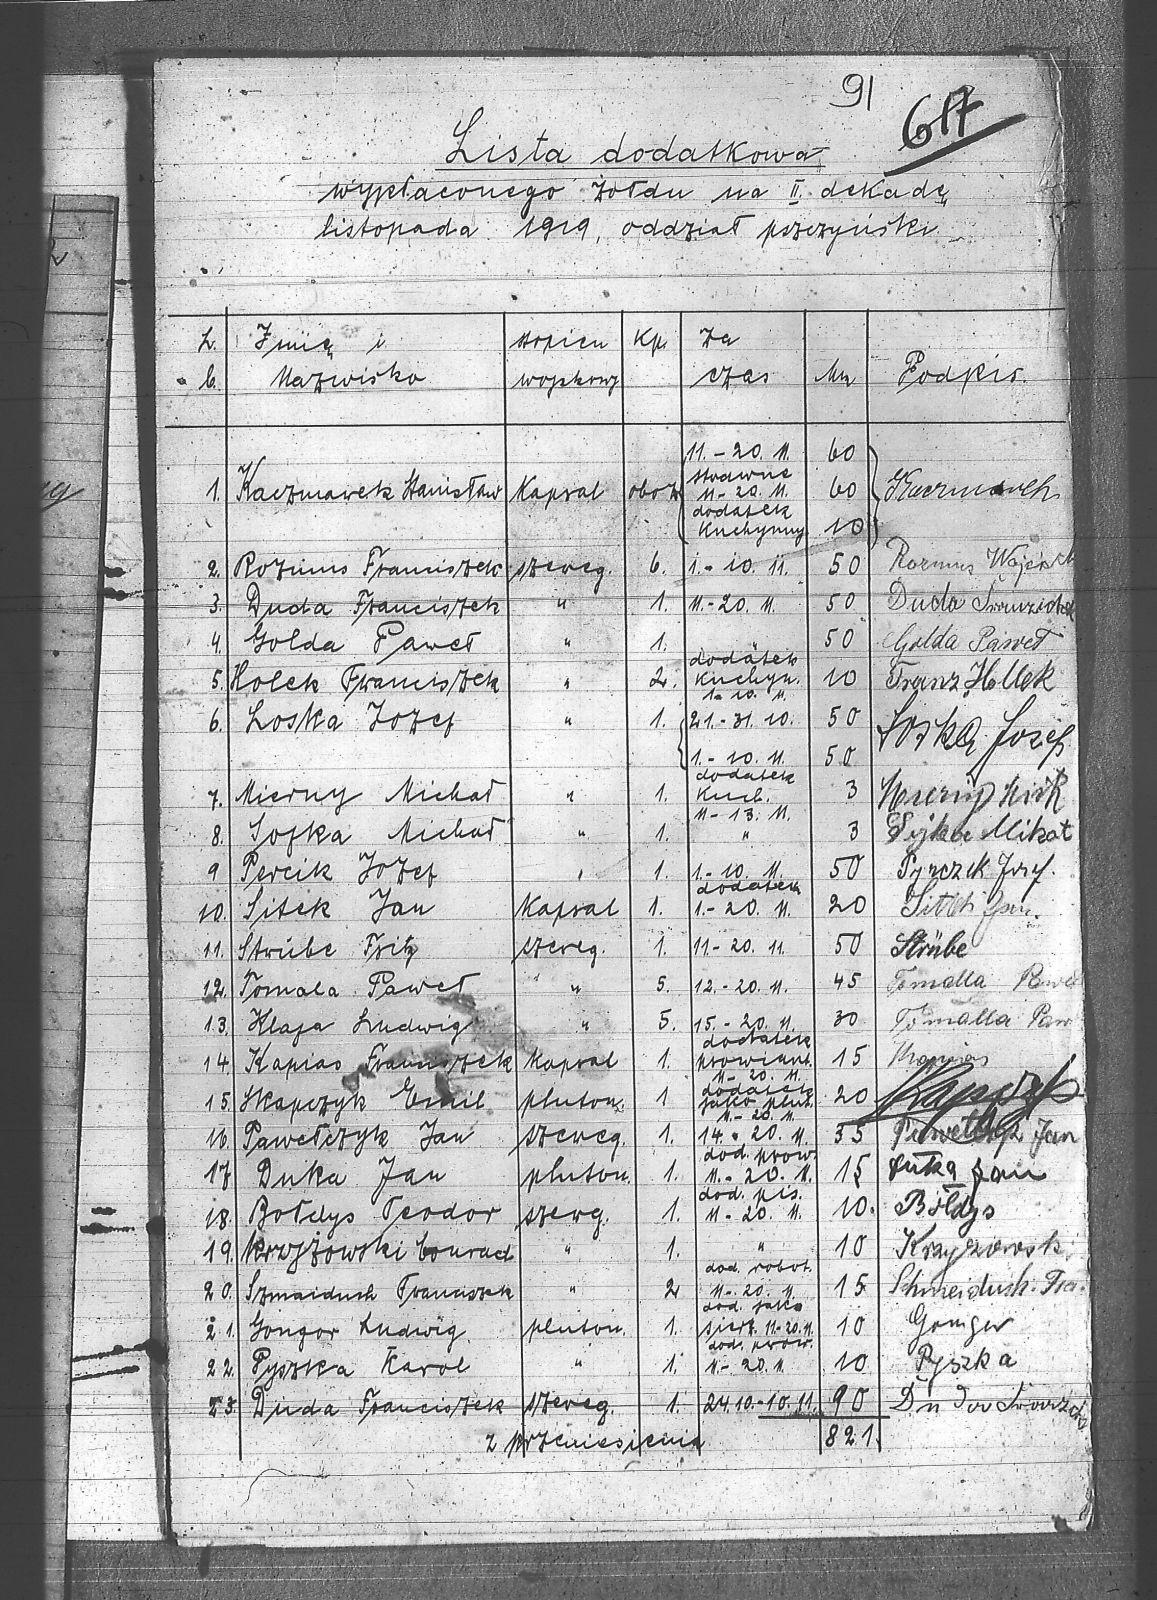 91
617
Lista dodatkowa
wypłaconego żołdu na II. dekadę
listopada 1919, oddział pszczyński
L. Imię i stopień Kp. Za
b. Nazwisko wojskowy czas Mk Podpis.
11.-20. 11. 60
strawne
1. Kaczmarek Stanisław Kapral oboz 11-20. 11. 60 Kaczmarek
dodatek
Kuchynny 10
2. Rozmus Franciszek szereg. 6. 1.-10. 11. 50 Rozmus
3. Duda Franciszek " 1. 11.-20. 11. 50 Duda
4. Golda Paweł " 1. " 50 Golda Paweł
dodatek
5. Holek Franciszek " 2. Kuchyn. 10 Franz Hollek
1-10. 11.
6. Loska Jozef " 1. 21.-31. 10. 50 Loska Josef
1.-10. 11. 50
dodatek
7. Mierny Michał " 1. Kuch. 3
11-13. 11.
8. Sofka Michał " 1. " 3
9 Percik Jozef " 1. 1.-10. 11. 50 Pyrczek Josef.
dodatek
10. Sitek Jan Kapral 1. 1.-20. 11. 20 Sittek Jan.
11. Strübe Fritz szereg. 1. 11-20. 11. 50 Strübe
12. Tomala Paweł " 5. 12.-20. 11. 45 Tomalla Paweł
13. Klaja Ludwig " 5. 15.-20. 11. 30 Tomalla Paw
dodatek
14. Kapias Franciszek Kapral 1. prowiant. 15 Kapias
11-20. 11.
dodatek
15. Skapczyk Emil pluton. 1 jako plut. 20
11-20. 11.
16. Pawełczyk Jan szereg. 1. 14.-20. 11. 35 Jan
dod. prow.
17 Duka Jan pluton. 1. 11.-20. 11. 15 Duka Jan
dod. pis.
18. Bołdys Teodor szereg. 1. 11-20. 11. 10. Böldys
19. Krzyżowski Conrad " 1. " 10 Krzyżowski
dod. robot.
20. Szmaiduch Franciszek " 2 11-20. 11. 15 Schmeiduch. Fra.
dod. jako
21. Gongor Ludwig pluton. 1. sierż. 11-20. 11. 10
dod. prow.
22. Pyszka Karol " 1. 11.-20. 11. 10 Pyszka
23. Duda Franciszek szereg. 1. 24.10.-10. 11. 90
z przeniesienia 821.